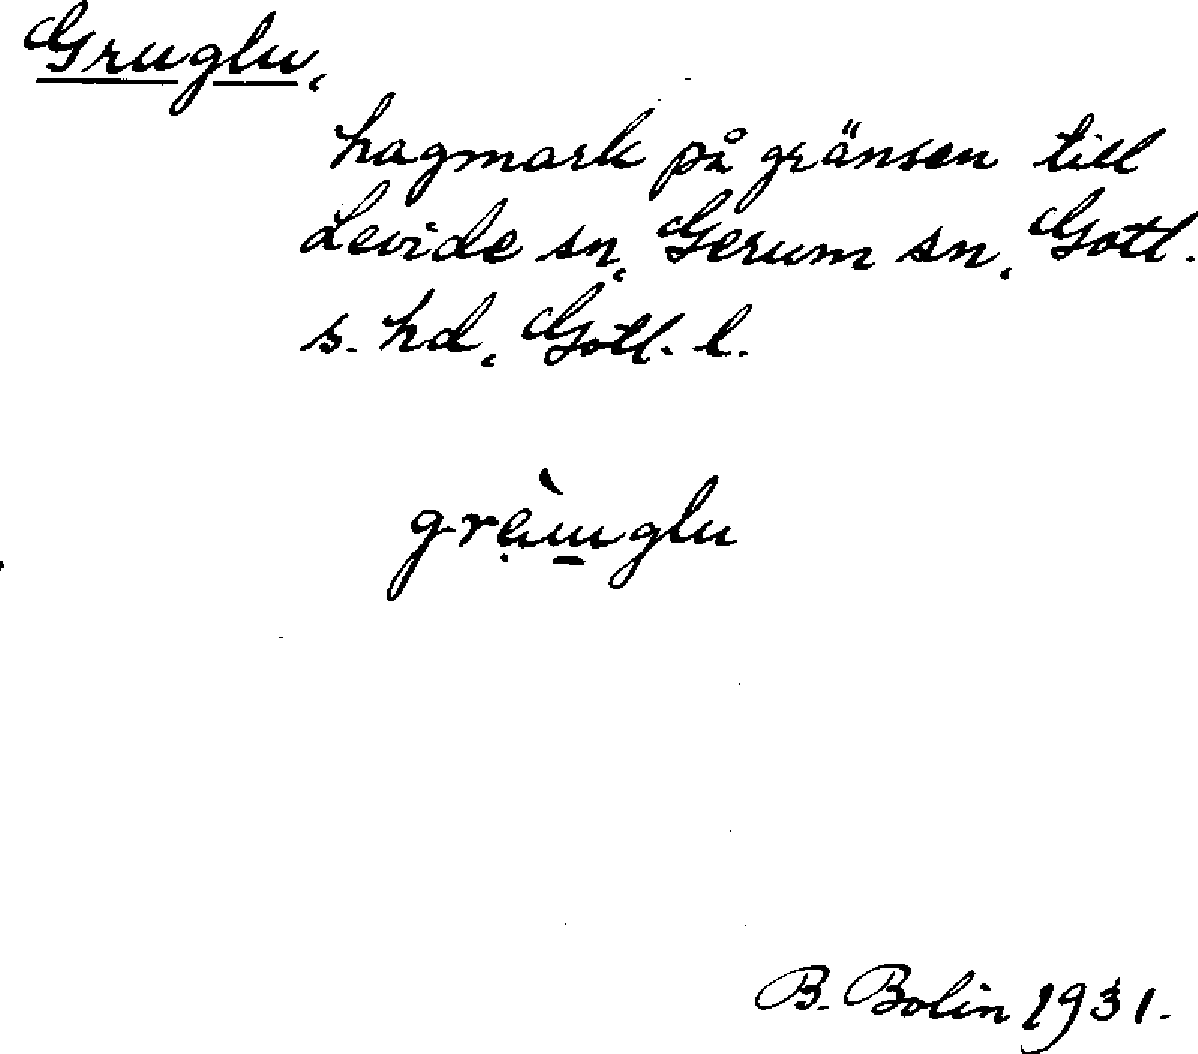 Gruglu,
hagmark på gränsen till
Levide sn, Gerum sn, Gotl.
s. hd, Gotl. l.
grèu̠glu
B. Bolin 1931.